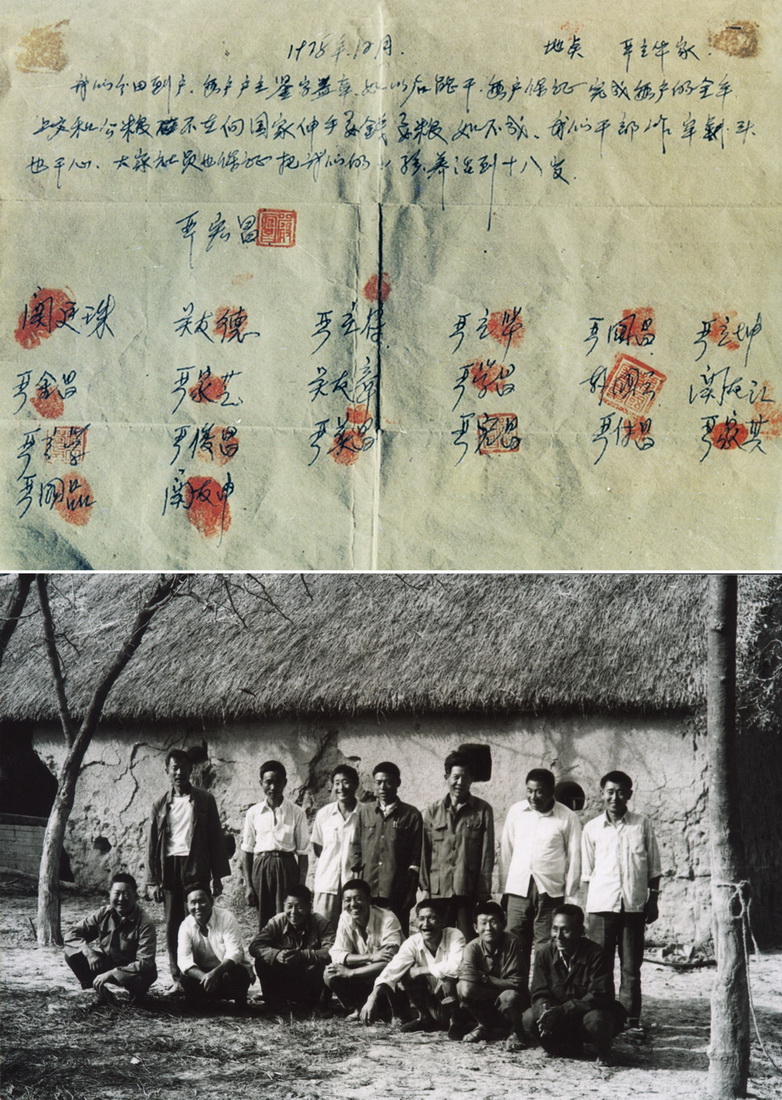 1978年12月. 地点 严立华家.
我们分田到户,每户户主签字盖章,如以后能干,每户保证完成每户的全年
上交和公粮 不在向国家伸手要钱要粮 如不成、我们干部作牢刹头
也干心、大家社员也保证把我们的小孩养活到十八岁.
严宏昌
关廷珠 关友德 严立符 严立华 严国昌 严立坤
严金昌 严家芝 关友章 严学昌 韩国云 关友江
严立学 严俊昌 严美昌 严宏昌 严付昌 严家其
严国品 关友申